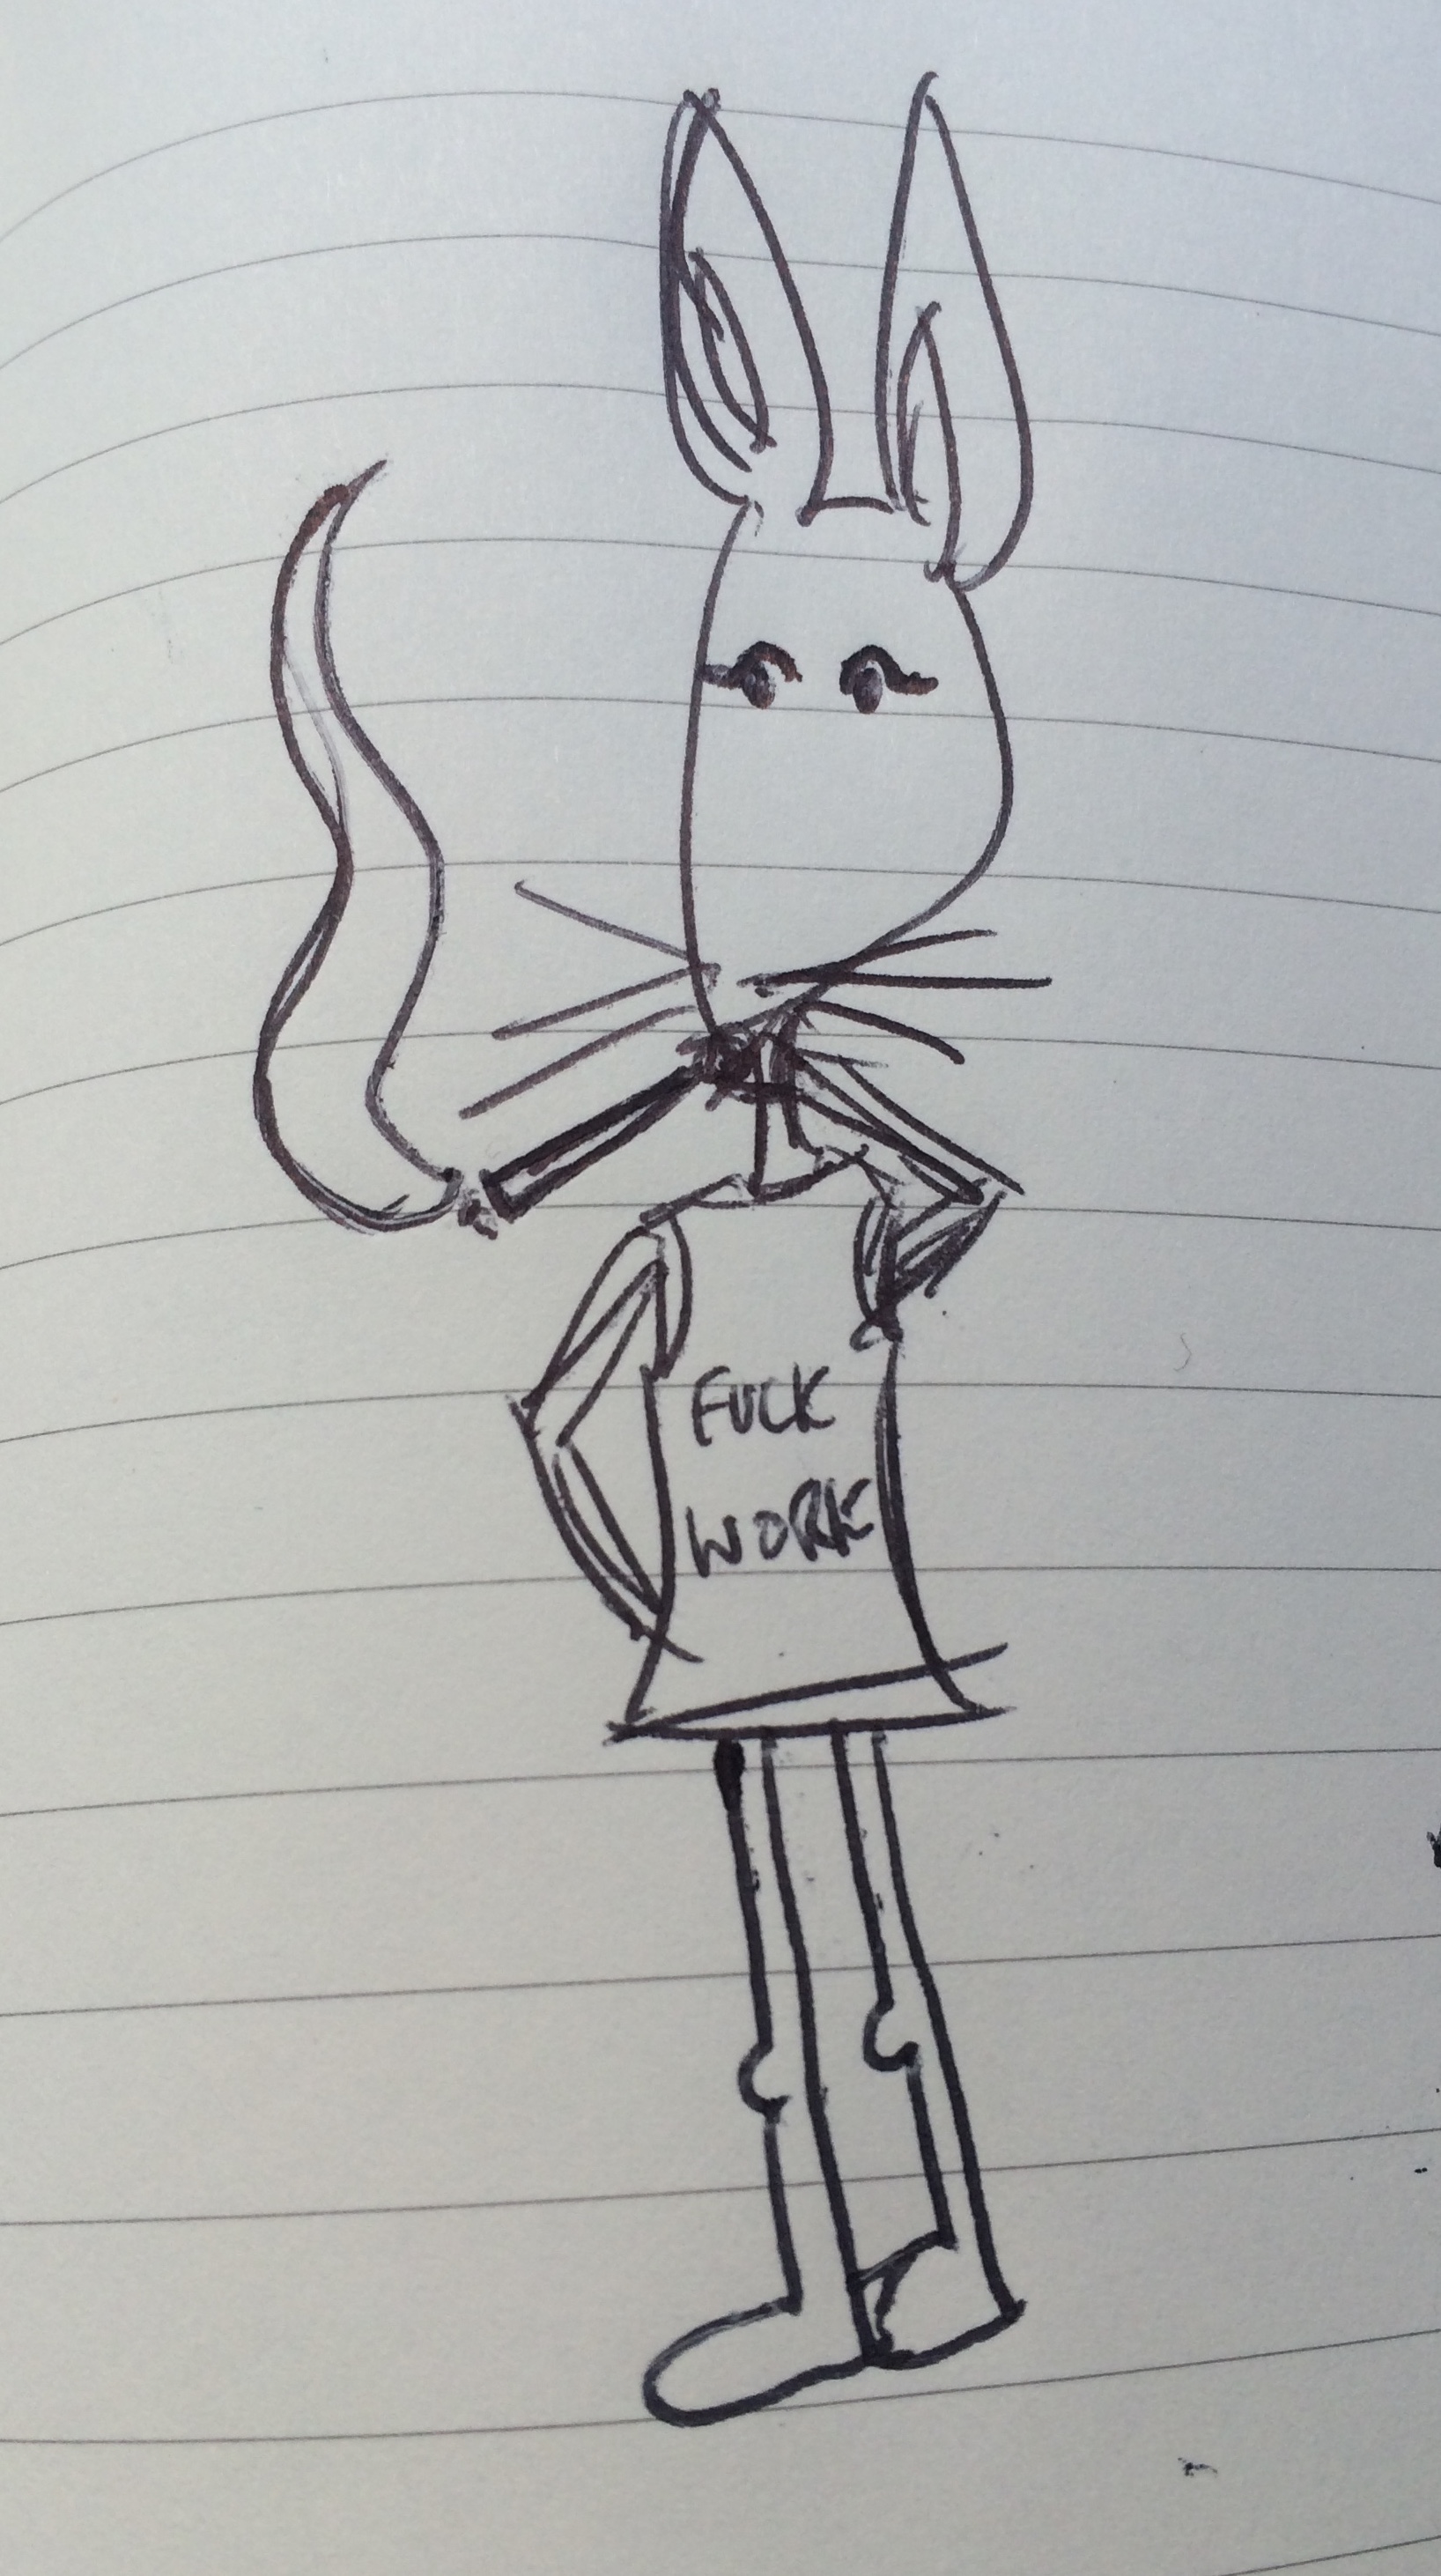 FUCK
WORK